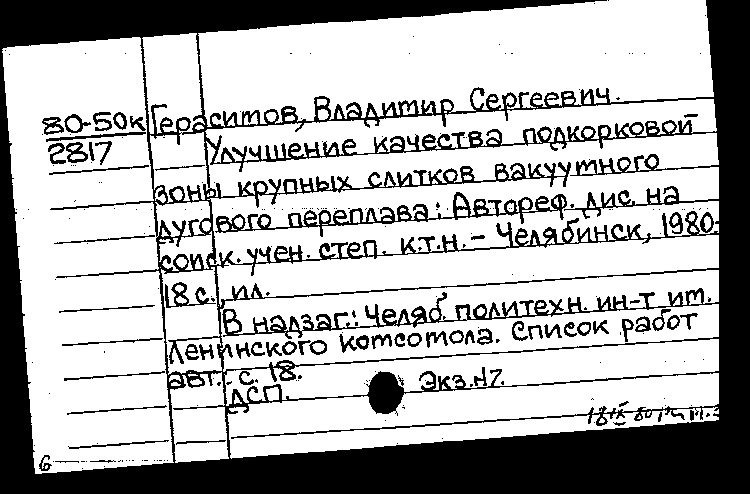 80-50к Герасимов, Владимир Сергеевич.
2817 Улучшение качества подкорковой
зоны крупных слитков вакуумного
дугового переплава: Автореф. дис. на
соиск. учен. степ. к.т.н. – Челябинск, 1980.-
18 с., ил.
В надзаг.: Челяб. политехн. ин-т им.
Ленинского комсомола. Список работ
авт.: с. 18.
ДСП. Экз. №7.
18 IX 80
6